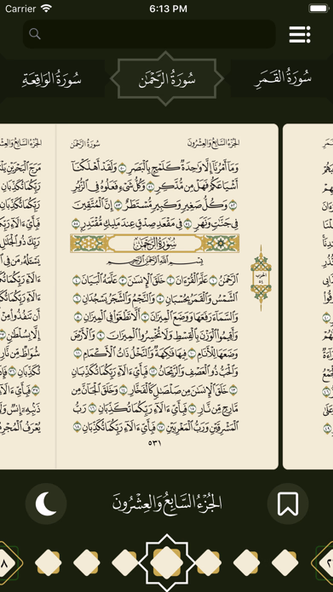 Carrier
6:13 PM
سُورَةُ القَمَرِ
سُورَةُ الرَّحْمَٰن
سُورَةُ الوَاقِعَةِ
الجُزْءُ السَّابِعُ وَالعِشْرُونَ
سُورَةُ الرَّحْمَٰن
وَمَآ أَمْرُنَآ إِلَّا وَٰحِدَةٌ كَلَمْحٍۭ بِٱلْبَصَرِ ٥٠ وَلَقَدْ أَهْلَكْنَآ
أَشْيَاعَكُمْ فَهَلْ مِن مُّدَّكِرٍ ٥١ وَكُلُّ شَىْءٍ فَعَلُوهُ فِى ٱلزُّبُرِ
٥٢ وَكُلُّ صَغِيرٍ وَكَبِيرٍ مُّسْتَطَرٌ ٥٣ إِنَّ ٱلْمُتَّقِينَ
فِى جَنَّٰتٍ وَنَهَرٍ ٥٤ فِى مَقْعَدِ صِدْقٍ عِندَ مَلِيكٍ مُّقْتَدِرٍۭ ٥٥
سُورَةُ الرَّحْمَٰن
بِسْمِ ٱللَّهِ ٱلرَّحْمَٰنِ ٱلرَّحِيمِ
ٱلرَّحْمَٰنُ ١ عَلَّمَ ٱلْقُرْءَانَ ٢ خَلَقَ ٱلْإِنسَٰنَ ٣ عَلَّمَهُ ٱلْبَيَانَ ٤
ٱلشَّمْسُ وَٱلْقَمَرُ بِحُسْبَانٍ ٥ وَٱلنَّجْمُ وَٱلشَّجَرُ يَسْجُدَانِ ٦
وَٱلسَّمَآءَ رَفَعَهَا وَوَضَعَ ٱلْمِيزَانَ ٧ أَلَّا تَطْغَوْا۟ فِى ٱلْمِيزَانِ ٨
وَأَقِيمُوا۟ ٱلْوَزْنَ بِٱلْقِسْطِ وَلَا تُخْسِرُوا۟ ٱلْمِيزَانَ ٩ وَٱلْأَرْضَ
وَضَعَهَا لِلْأَنَامِ ١٠ فِيهَا فَٰكِهَةٌ وَٱلنَّخْلُ ذَاتُ ٱلْأَكْمَامِ
١١ وَٱلْحَبُّ ذُو ٱلْعَصْفِ وَٱلرَّيْحَانُ ١٢ فَبِأَىِّ ءَالَآءِ رَبِّكُمَا تُكَذِّبَانِ
١٣ خَلَقَ ٱلْإِنسَٰنَ مِن صَلْصَٰلٍ كَٱلْفَخَّارِ ١٤ وَخَلَقَ ٱلْجَآنَّ مِن
مَّارِجٍ مِّن نَّارٍ ١٥ فَبِأَىِّ ءَالَآءِ رَبِّكُمَا تُكَذِّبَانِ ١٦ رَبُّ
ٱلْمَشْرِقَيْنِ وَرَبُّ ٱلْمَغْرِبَيْنِ ١٧ فَبِأَىِّ ءَالَآءِ رَبِّكُمَا تُكَذِّبَانِ ١٨
٥٣١
الجُزْءُ السَّابِعُ وَالعِشْرُونَ